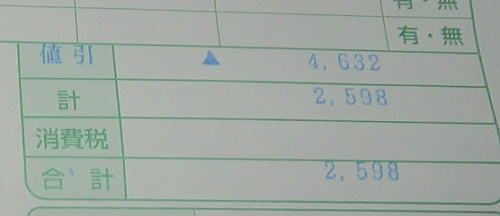 有・無
有・無
値引 ▲ 4,632
計 2,598
消費税
合計 2,598